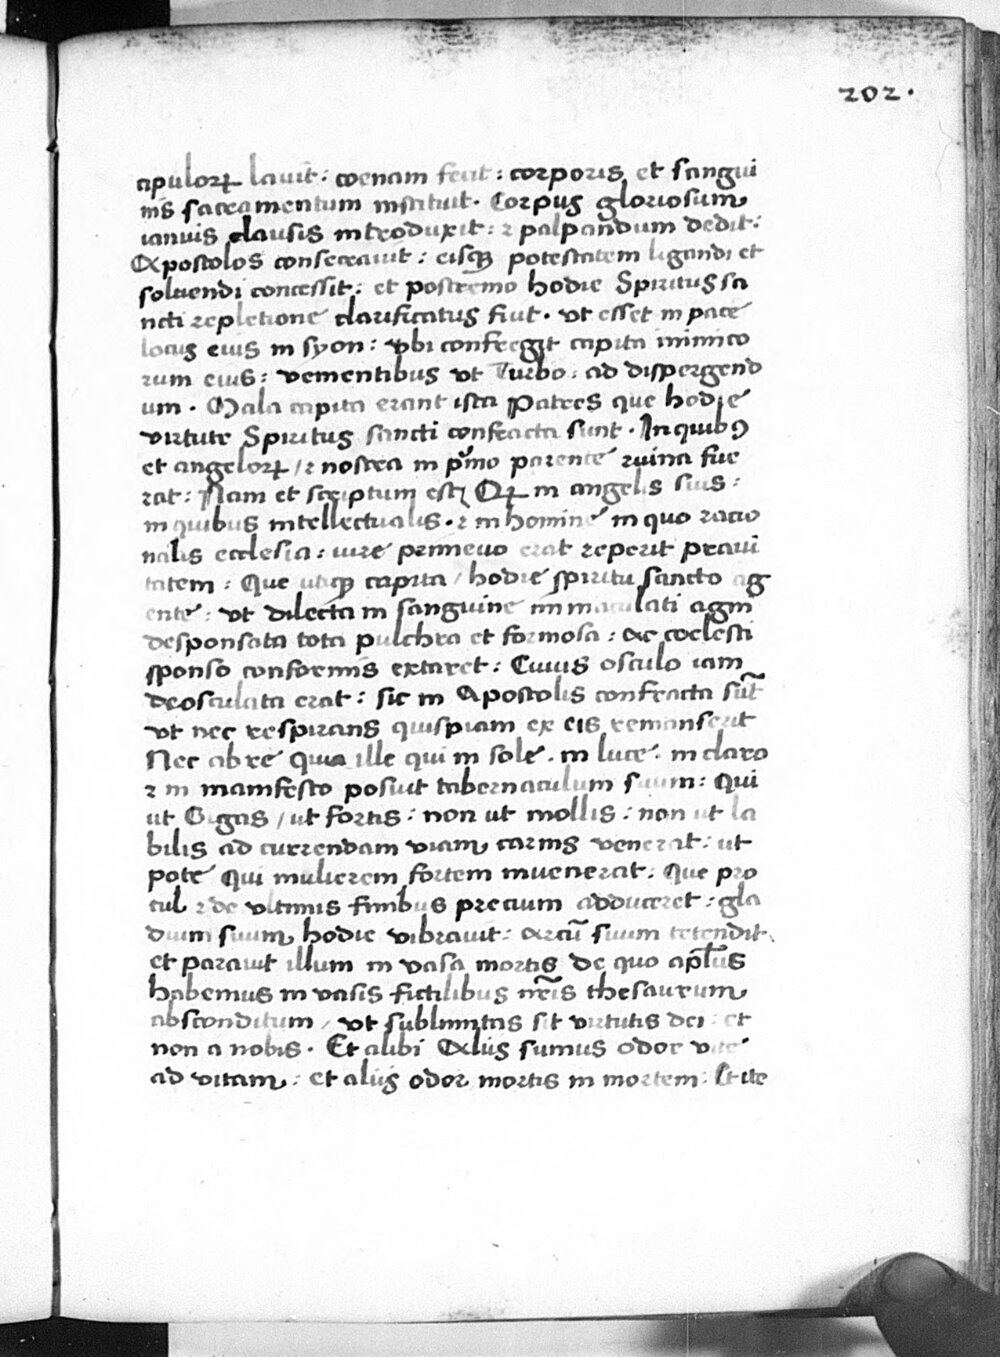 202.
cipuloꝝ lauit: coenam fecit: corporis et sangui
nis sacramentum instituit. Corpus gloriosum
ianuis clausis introduxit: ⁊ palpandum dedit:
Apostolos consecrauit: eisqꝫ potestatem ligandi et
soluendi concessit: et postremo hodie Spiritus sa
ncti repletione clarificatus fiut. vt esset in pace
locus eius in syon: vbi confregit capita inimico
rum eius: vementibus vt Turbo: ad dispergend
um. Mala capita erant ista Patres que hodie
virtute Spiritus sancti confracta sunt. In quibꝰ
et angeloꝝ / ⁊ nostra in pͥmo parente ruina fue
rat: Nam et scriptum est; Qꝝ in angelis suis:
in quibus intellectualis. ⁊ in homine in quo ratio
nalis ecclesia: iure primeuo erat reperit praui
tatem: Que utiqꝫ capita / hodie spiritu sancto ag
ente: vt dilecta in sanguine immaculati agni
desponsata tota pulchra et formosa: ac coelesti
sponso conformis extaret: Cuius osculo iam
deosculata erat: sic in Apostolis confracta sūt
vt nec respirans quispiam ex eis remanserit
Nec ab re quia ille qui in sole. in luce. in claro
⁊ in manifesto posuit tabernaculum suum: Qui
ut Gigas / ut fortis: non ut mollis: non ut la
bilis ad currendam viam carnis venerat: ut
pote qui mulierem fortem inuenerat: Que pro
cul ⁊ de vltimis finibus precium adduceret: gla
dium suum hodie vibrauit: arcū suum tetendit
et parauit illum in vasa mortis de quo ap̄lus
habemus in vasis fictilibus nr̄is thesaurum
absconditum / vt sublimitas sit virtutis dei: et
non a nobis. Et alibi Aliis sumus odor vite
ad vitam: et aliis odor mortis in mortem: Et ite